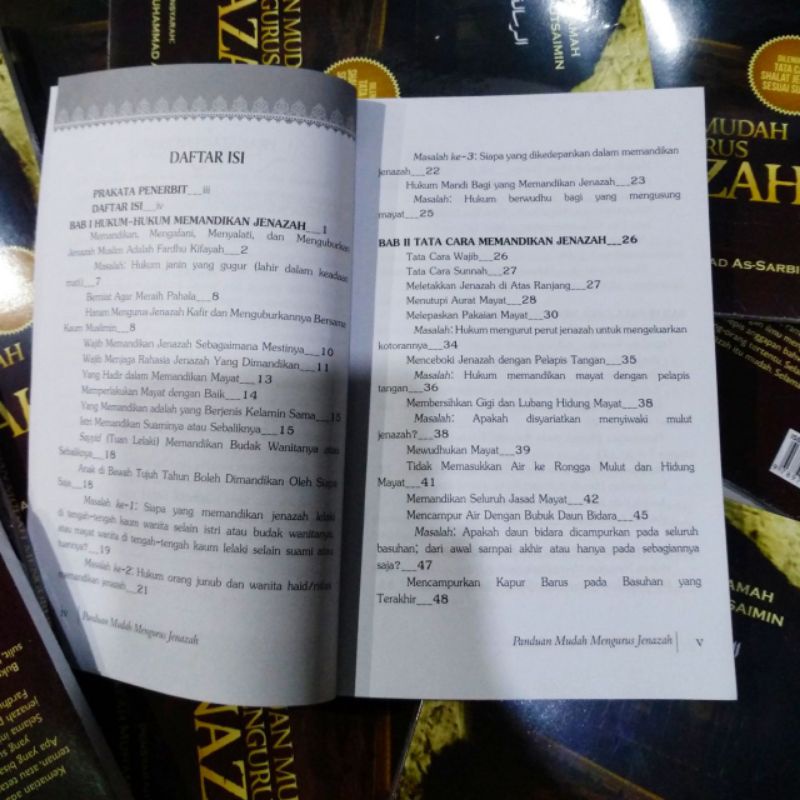 DAFTAR ISI
PRAKATA PENERBIT___iii
DAFTAR ISI___iv
BAB I HUKUM-HUKUM MEMANDIKAN JENAZAH___1
Memandikan, Mengafani, Menyalati, dan Menguburkan
Jenazah Muslim Adalah Fardhu Kifayah___2
Masalah: Hukum janin yang gugur (lahir dalam keadaan
mati)___7
Berniat Agar Meraih Pahala___8
Haram Mengurus Jenazah Kafir dan Menguburkannya Bersama
Kaum Muslimin___8
Wajib Memandikan Jenazah Sebagaimana Mestinya___10
Wajib Menjaga Rahasia Jenazah Yang Dimandikan___11
Yang Hadir dalam Memandikan Mayat___13
Memperlakukan Mayat dengan Baik___14
Yang Memandikan adalah yang Berjenis Kelamin Sama___15
Istri Memandikan Suaminya atau Sebaliknya___15
Sayyid (Tuan Lelaki) Memandikan Budak Wanitanya atau
Sebaliknya___18
Anak di Bawah Tujuh Tahun Boleh Dimandikan Oleh Siapa
Saja___18
Masalah ke-1: Siapa yang memandikan jenazah lelaki
di tengah-tengah kaum wanita selain istri atau budak wanitanya,
atau mayat wanita di tengah-tengah kaum lelaki selain suami atau
tuannya?___19
Masalah ke-2: Hukum orang junub dan wanita haid/nifas
memandikan jenazah___21
iv | Panduan Mudah Mengurus Jenazah
Masalah ke-3: Siapa yang dikedepankan dalam memandikan
jenazah___22
Hukum Mandi Bagi yang Memandikan Jenazah___23
Masalah: Hukum berwudhu bagi yang mengusung
mayat___25
BAB II TATA CARA MEMANDIKAN JENAZAH___26
Tata Cara Wajib___26
Tata Cara Sunnah___27
Meletakkan Jenazah di Atas Ranjang___27
Menutupi Aurat Mayat___28
Melepaskan Pakaian Mayat___30
Masalah: Hukum mengurut perut jenazah untuk mengeluarkan
kotorannya___34
Menceboki Jenazah dengan Pelapis Tangan___35
Masalah: Hukum memandikan mayat dengan pelapis
tangan___36
Membersihkan Gigi dan Lubang Hidung Mayat___38
Masalah: Apakah disyariatkan menyiwaki mulut
jenazah?___38
Mewudhukan Mayat___39
Tidak Memasukkan Air ke Rongga Mulut dan Hidung
Mayat___41
Memandikan Seluruh Jasad Mayat___42
Mencampur Air Dengan Bubuk Daun Bidara___45
Masalah: Apakah daun bidara dicampurkan pada seluruh
basuhan; dari awal sampai akhir atau hanya pada sebagiannya
saja?___47
Mencampurkan Kapur Barus pada Basuhan yang
Terakhir___48
Panduan Mudah Mengurus Jenazah | v